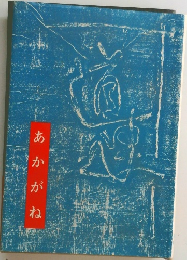 あかがね